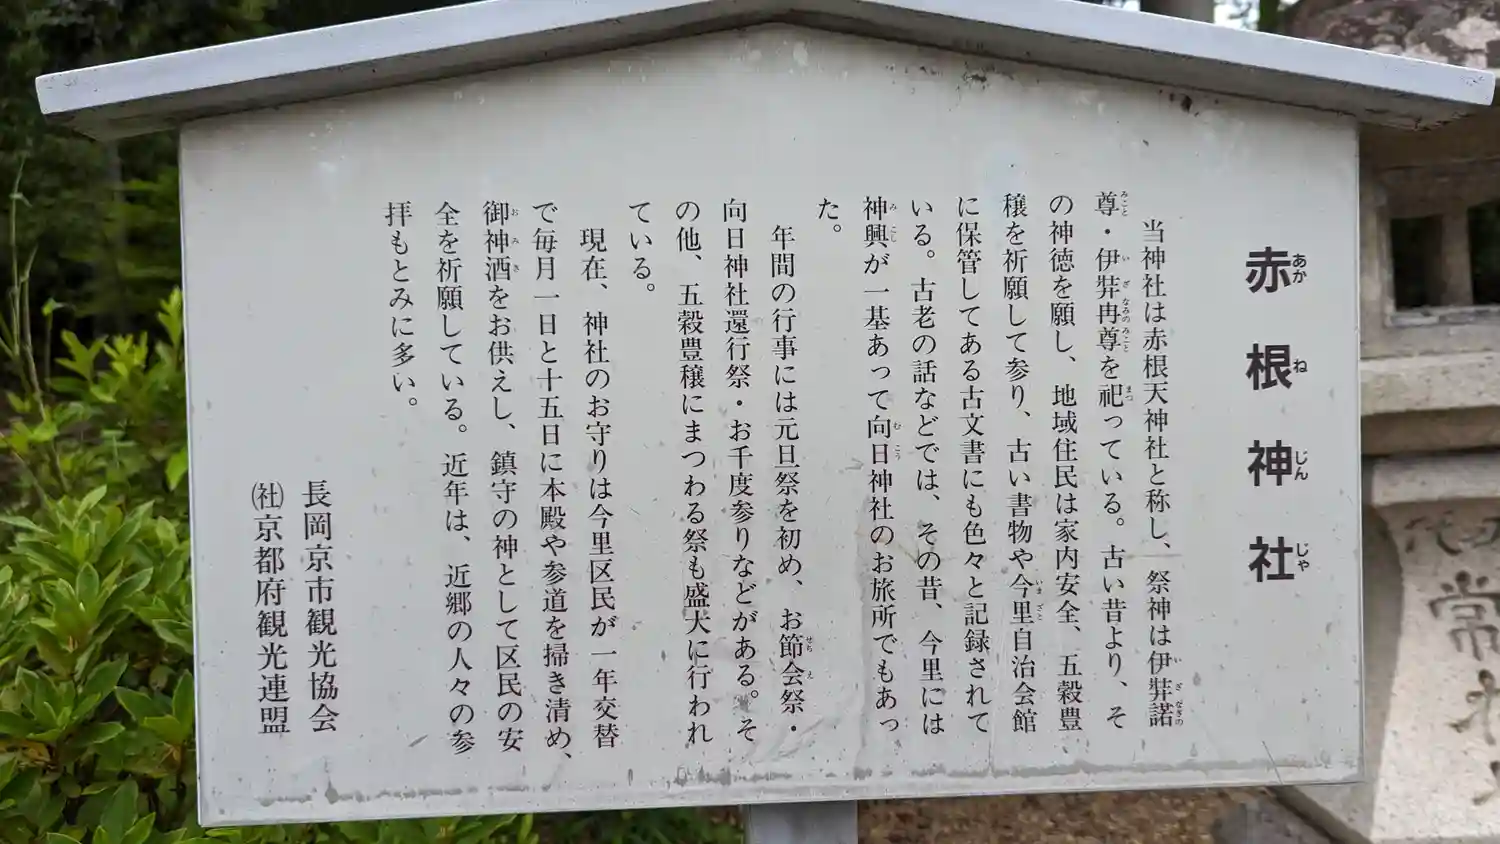 赤根神社
当神社は赤根天神社と称し、祭神は伊弉諾
尊・伊弉冉尊を祀っている。古い昔より、そ
の神徳を願し、地域住民は家内安全、五穀豊
穣を祈願して参り、古い書物や今里自治会館
に保管してある古文書にも色々と記録されて
いる。古老の話などでは、その昔、今里には
神興が一基あって向日神社のお旅所でもあっ
た。
年間の行事には元旦祭を初め、お節会祭・
向日神社還行祭・お千度参りなどがある。そ
の他、五穀豊穣にまつわる祭も盛大に行われ
ている。
現在、神社のお守りは今里区民が一年交替
で毎月一日と十五日に本殿や参道を掃き清め、
御神酒をお供えし、鎮守の神として区民の安
全を祈願している。近年は、近郷の人々の参
拝もとみに多い。
長岡京市観光協会
㈳京都府観光連盟
常